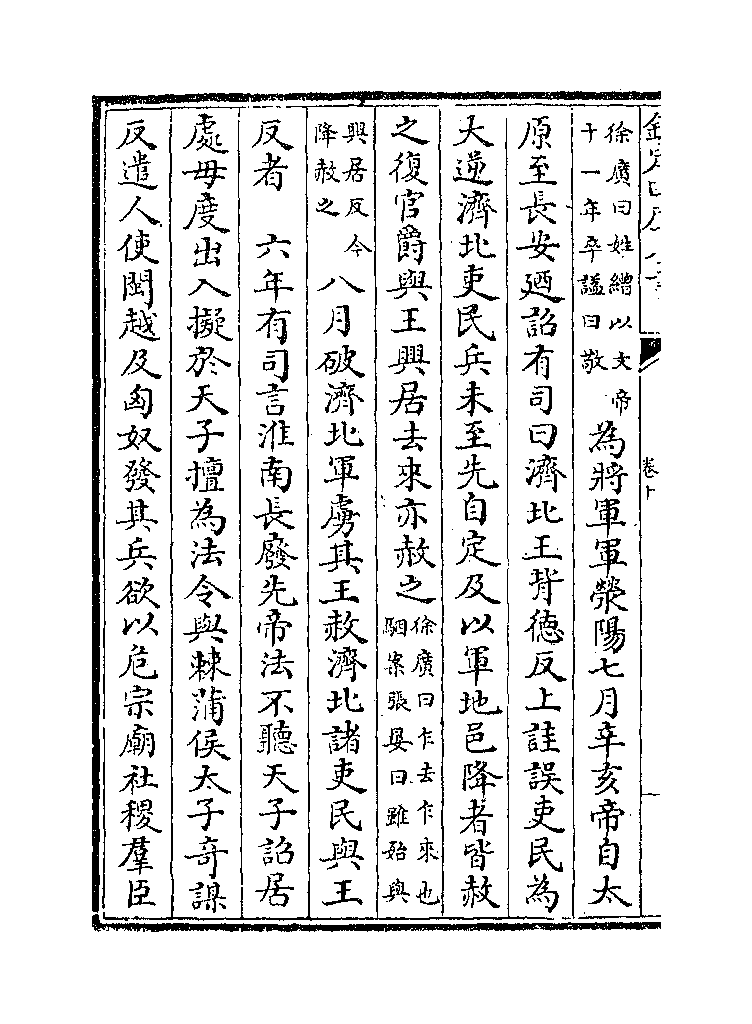 徐廣曰姓繒以文帝十一年卒謚曰敬為將軍軍滎陽七月辛亥帝自太
原至長安廼詔有司曰濟北王背德反上詿誤吏民為
大逆濟北吏民兵未至先自定及以軍地邑降者皆赦
之復官爵與王興居去來亦赦之徐廣曰乍去乍來也駰案張晏曰雖始與
興居反今降赦之八月破濟北軍虜其王赦濟北諸吏民與王
反者 六年有司言淮南長廢先帝法不聽天子詔居
處毋度出入擬於天子擅為法令與棘蒲侯太子奇謀
反遣人使閩越及匈奴發其兵欲以危宗廟社稷羣臣
卷十